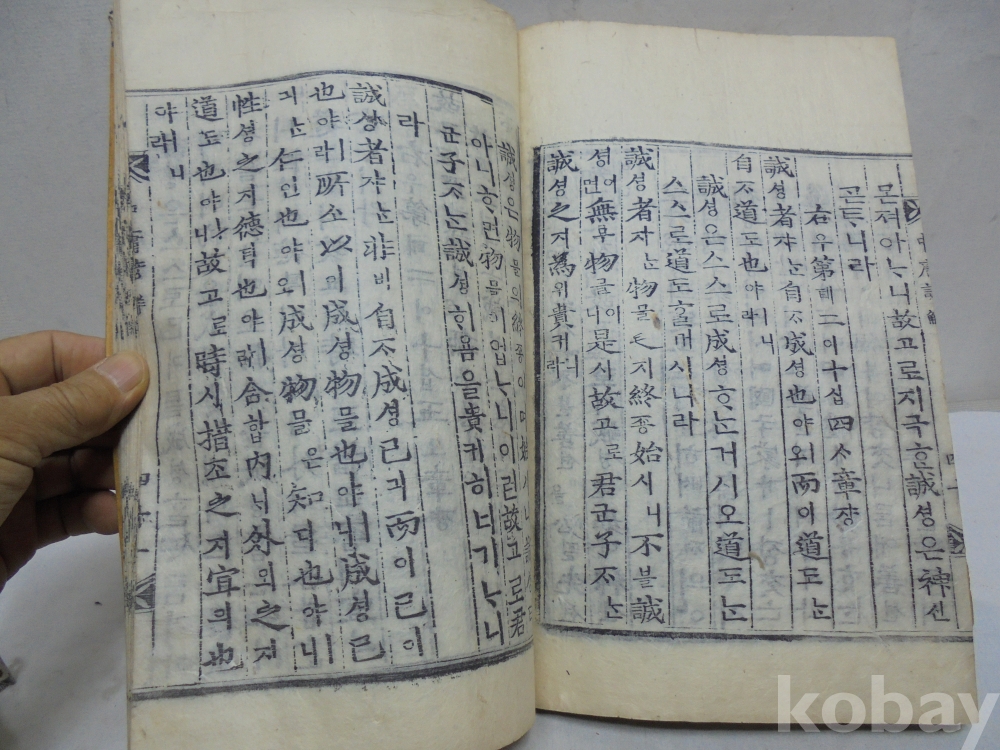 中庸諺解
몬져아ᄂᆞ니故고로지극ᄒᆞᆫ誠셩은神신
ᄀᆞᆮᄐᆞ니라
右우第뎨二이十십四ᄉᆞ章쟝
誠셩者쟈ᄂᆞᆫ自ᄌᆞ成셩也야ㅣ오而이道도ᄂᆞᆫ
自ᄌᆞ道도也야ㅣ니라
誠셩은스스로成셩ᄒᆞᄂᆞᆫ거시오道도ᄂᆞᆫ
스스로道도ᄒᆞᆯ꺼시니라
誠셩者쟈ᄂᆞᆫ物믈之지終죵始시니不블誠
셩이면無무物믈이니是시故고로君군子ᄌᆞᄂᆞᆫ
誠셩之지為위貴귀니라
誠셩은物믈의終죵이며始시니誠
아니ᄒᆞ면物믈이업ᄂᆞ니이런故고로君
군子ᄌᆞᄂᆞᆫ誠셩ᄒᆞ욤을貴귀히너기ᄂᆞ니
라
誠셩者쟈ᄂᆞᆫ非비自ᄌᆞ成셩己긔而이已이
也야ㅣ라所소以이成셩物믈也야ㅣ니成셩己
긔ᄂᆞᆫ仁인也야ㅣ오成셩物믈은知디也야ㅣ니
性셩之지德덕也야ㅣ라合합內ᄂᆡ外외之지
道도也야ㅣ니故고로時시措조之지宜의也
야ㅣ니라
kobay